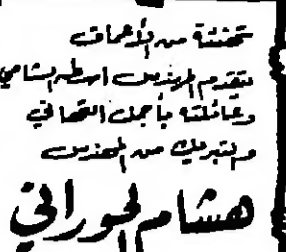 تهنئة من الأعماق
يتقدم المهندس اسطه الشامي
وعائلته بأجمل التهاني
والتبريك من المهندس
هشام الحوراني